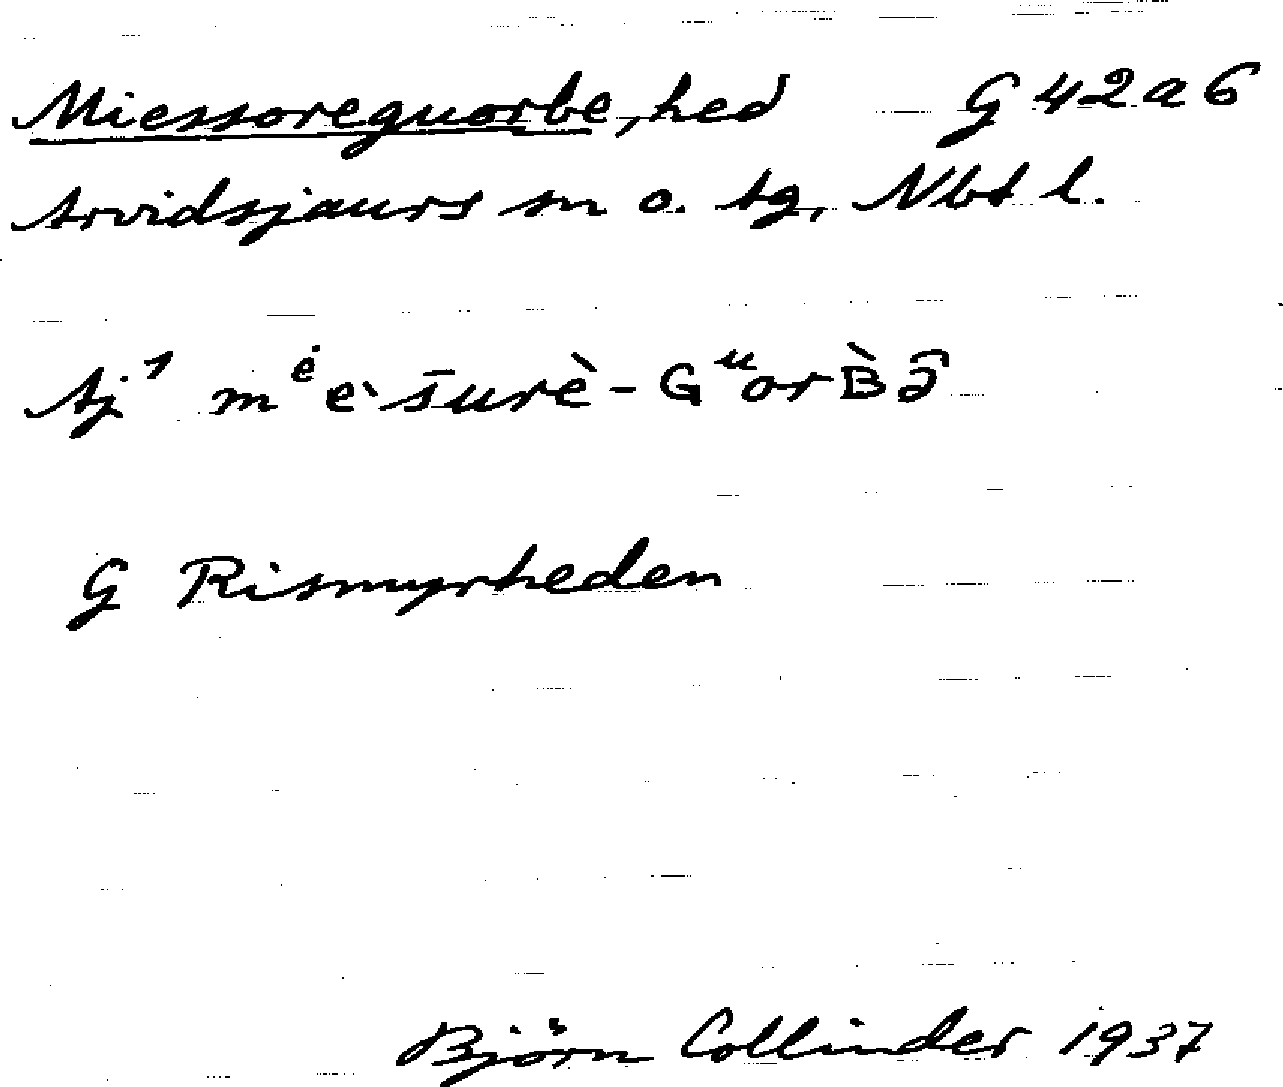 Miessoreguorbe, hed G 42 a 6
Arvidsjaurs sn o. tg, Nbt l.
Aj¹ mᵉ̇ès̄urè-GᵘorB̀ə̑
G Rismyrheden
Björn Collinder 1937